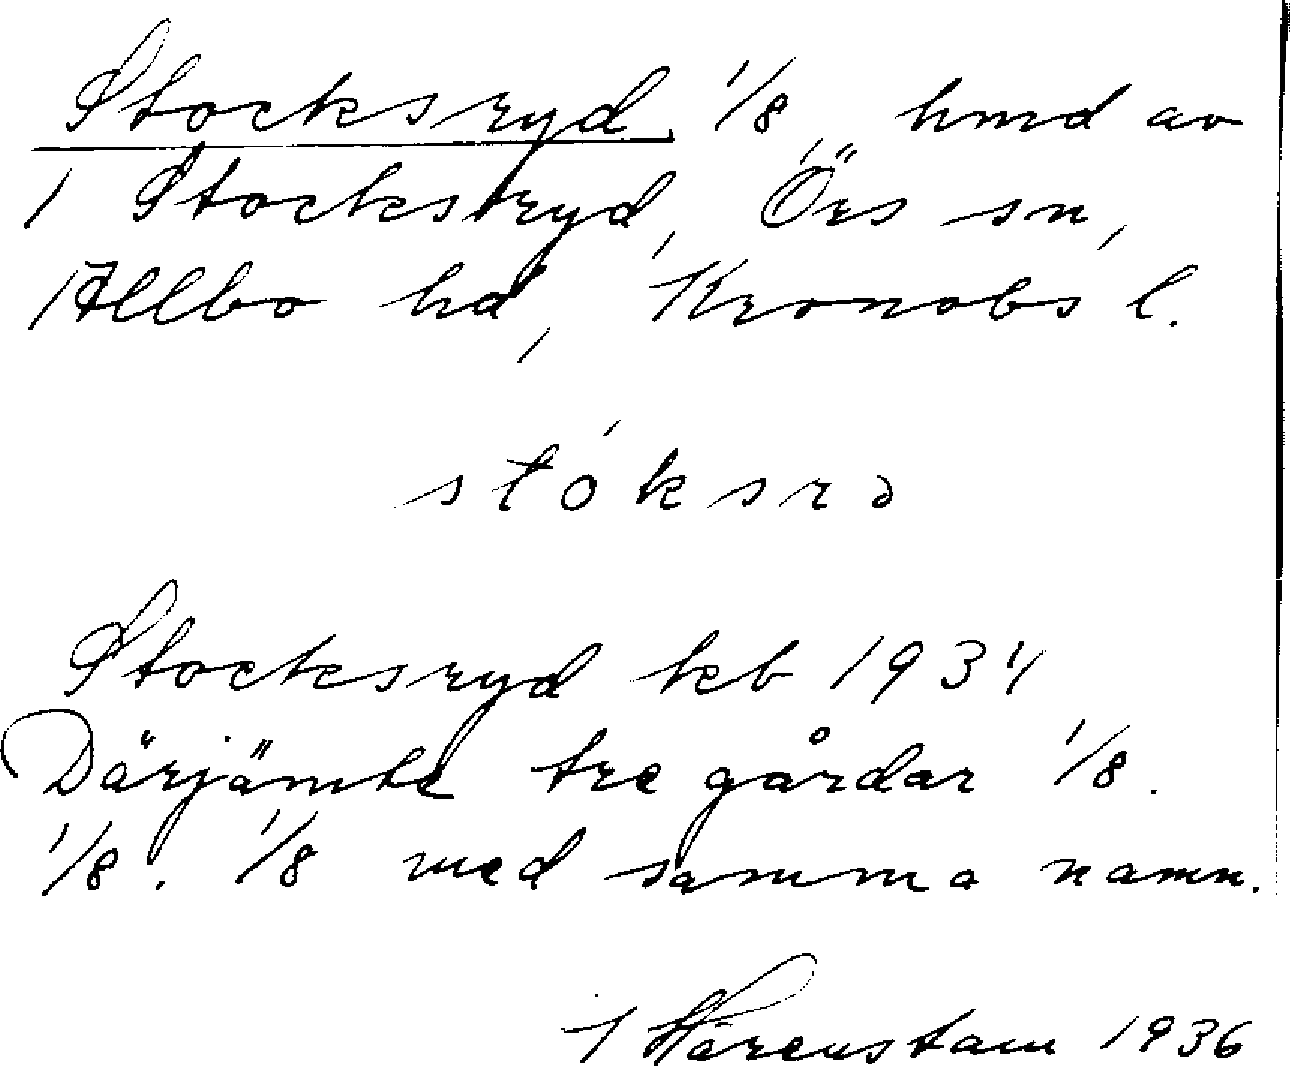 Stocksryd 1/8 hmd av
1 Stocksryd, Örs sn,
Allbo hd, Kronobs l.
stóksrə
Stocksryd kb 1934
Därjämte tre gårdar 1/8.
1/8. 1/8 med samma namn.
1936